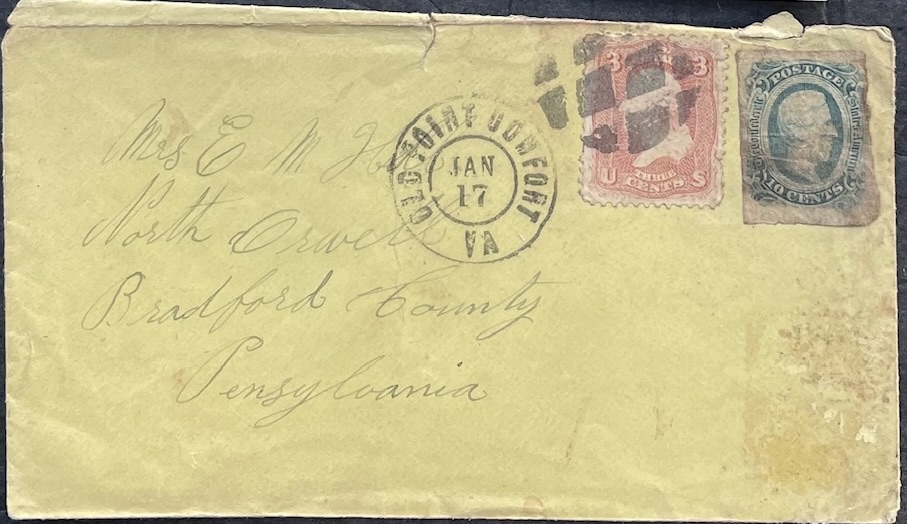 Mrs E M
North Orwell
Bradford County
Pensylvania
OLD POINT COMFORT
JAN
17
VA
3 3
U THREE S
CENTS
POSTAGE
Confederate States of America
10 CENTS